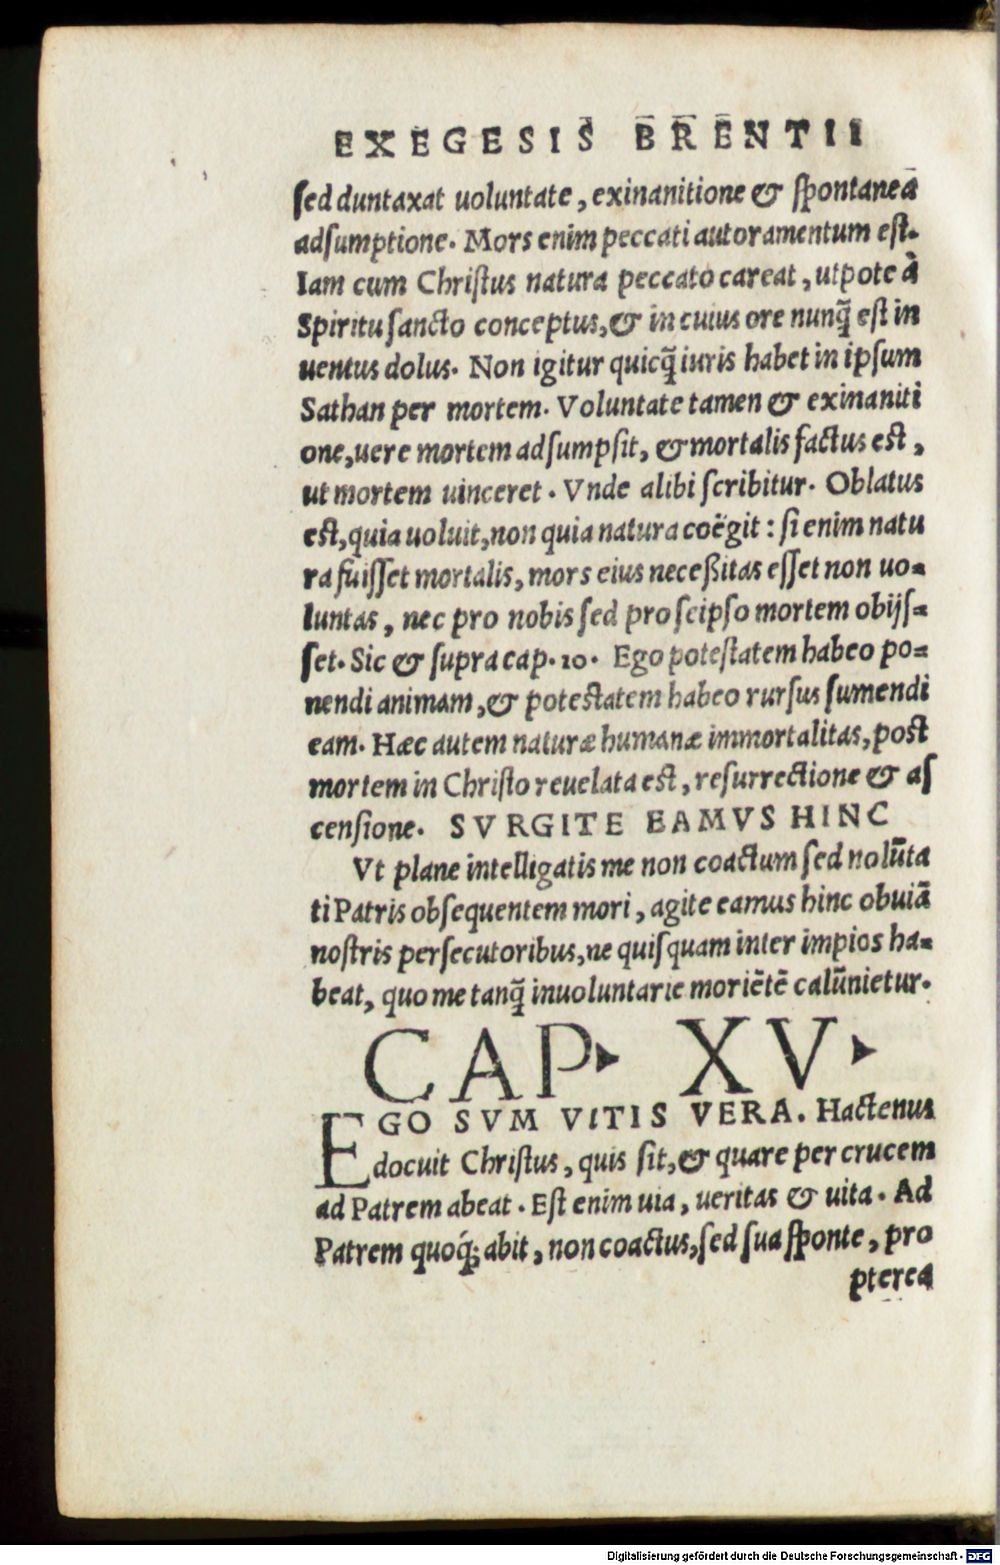 EXEGESIS BRENTII
ſed duntaxat uoluntate, exinanitione & ſpontanea
adſumptione. Mors enim peccati autoramentum eſt.
Iam cum Chriſtus natura peccato careat, utpote à
Spiritu ſancto conceptus, & in cuius ore nunq̃ eſt in
uentus dolus. Non igitur quicq̃ iuris habet in ipſum
Sathan per mortem. Voluntate tamen & exinaniti
one, uere mortem adſumpſit, & mortalis factus eſt,
ut mortem uinceret. Vnde alibi ſcribitur. Oblatus
eſt, quia uoluit, non quia natura coëgit: ſi enim natu
ra fuiſſet mortalis, mors eius neceßitas eſſet non uo-
luntas, nec pro nobis ſed pro ſeipſo mortem obijſ-
ſet. Sic & ſupra cap. 10. Ego poteſtatem habeo po-
nendi animam, & poteſtatem habeo rurſus ſumendi
eam. Hæc autem naturæ humanæ immortalitas, poſt
mortem in Chriſto reuelata eſt, reſurrectione & aſ
cenſione. SVRGITE EAMVS HINC
Vt plane intelligatis me non coactum ſed uolũta
ti Patris obſequentem mori, agite eamus hinc obuiã
noſtris perſecutoribus, ne quiſquam inter impios ha-
beat, quo me tanq̃ inuoluntarie moriẽtẽ calũnietur.
CAP. XV.
EGO SVM VITIS VERA. Hactenus
docuit Chriſtus, quis ſit, & quare per crucem
ad Patrem abeat. Eſt enim uia, ueritas & uita. Ad
Patrem quoq́; abit, non coactus, ſed ſua ſponte, pro
pterea
Digitalisierung gefördert durch die Deutsche Forschungsgemeinschaft - DFG